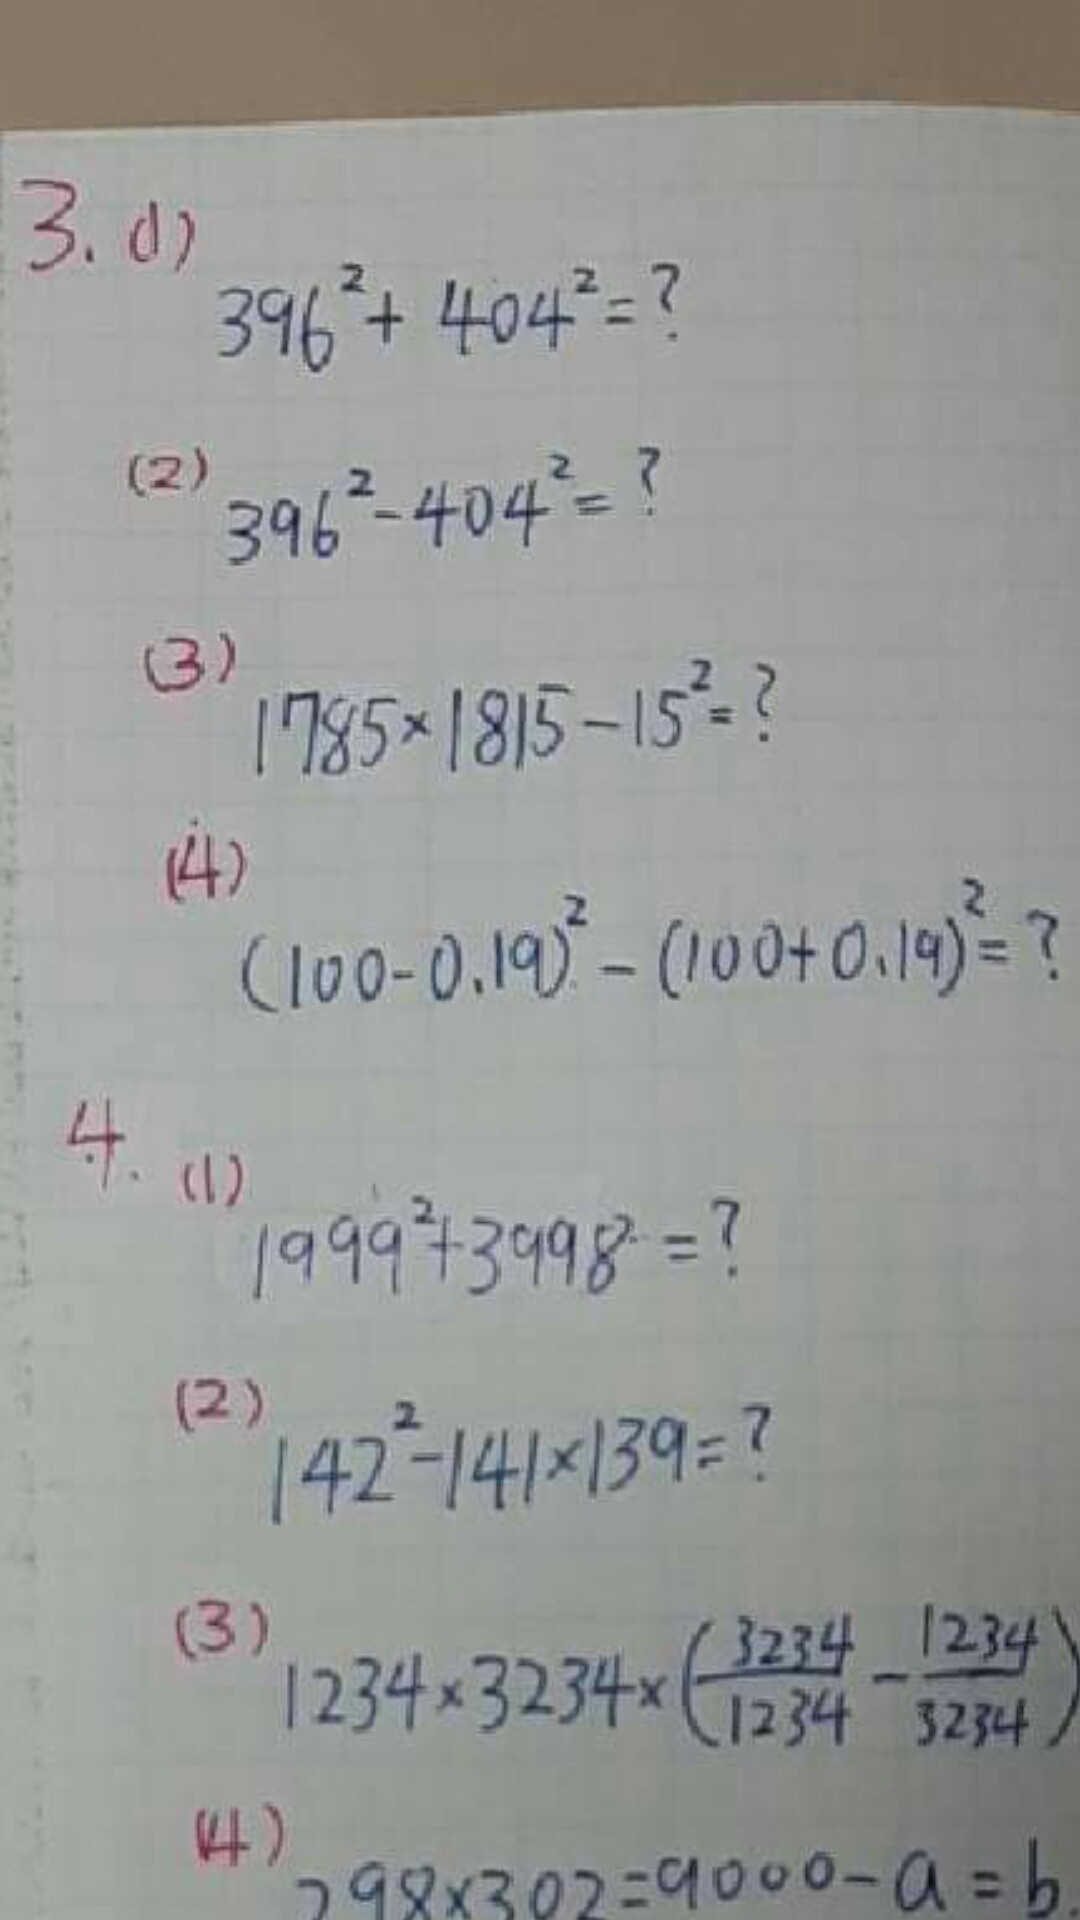 3. (1)
396²+ 404²=?
(2) 396²-404²=?
(3)
1785×1815-15²=?
(4)
(100-0.19)² - (100+0.19)²=?
4. (1)
1999²+3998² =?
(2) 142²-141×139=?
(3) 1234×3234×(3234/1234 - 1234/3234)
(4)
298×302=9000-a=b